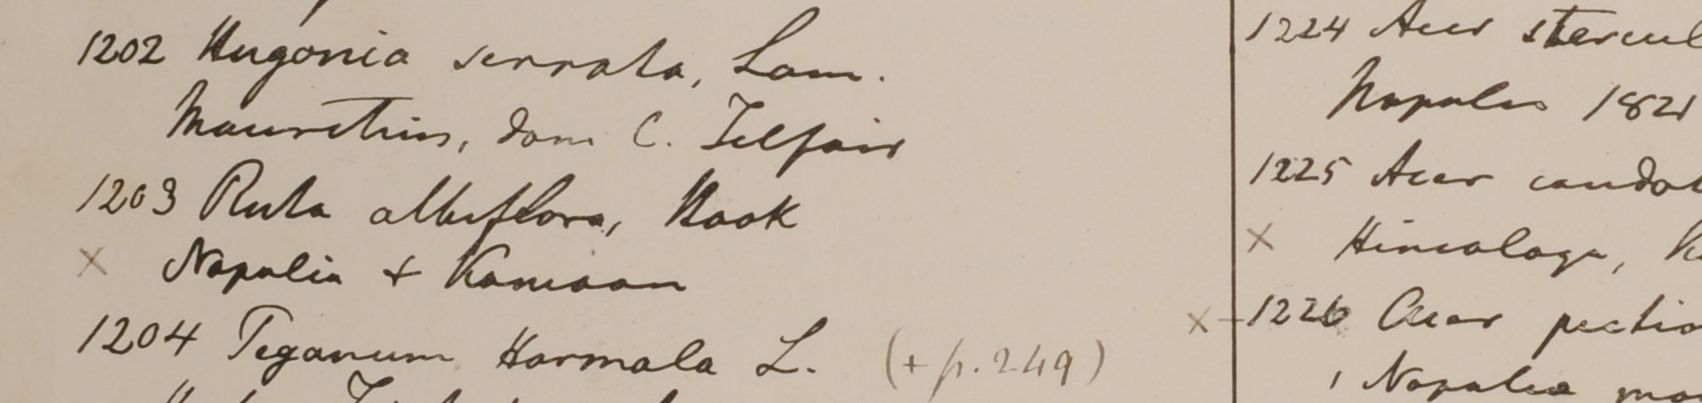 1202 Hugonia serrata, Lam.
Mauritius, dom C. Telfair
1203 Ruta albiflora, Hook
x Napalia + Kamaon
1204 Peganum Harmala L. (+ p. 249)
1224 Acer stercul
Napalia 1821
1225 Acer caudat
x Himalaya, K
x 1226 Acer pectin
1 Napalia